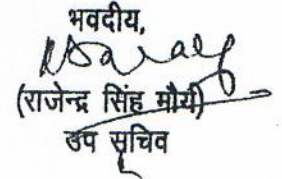 भवदीय,
(राजेन्द्र सिंह मौर्य)
उप सचिव